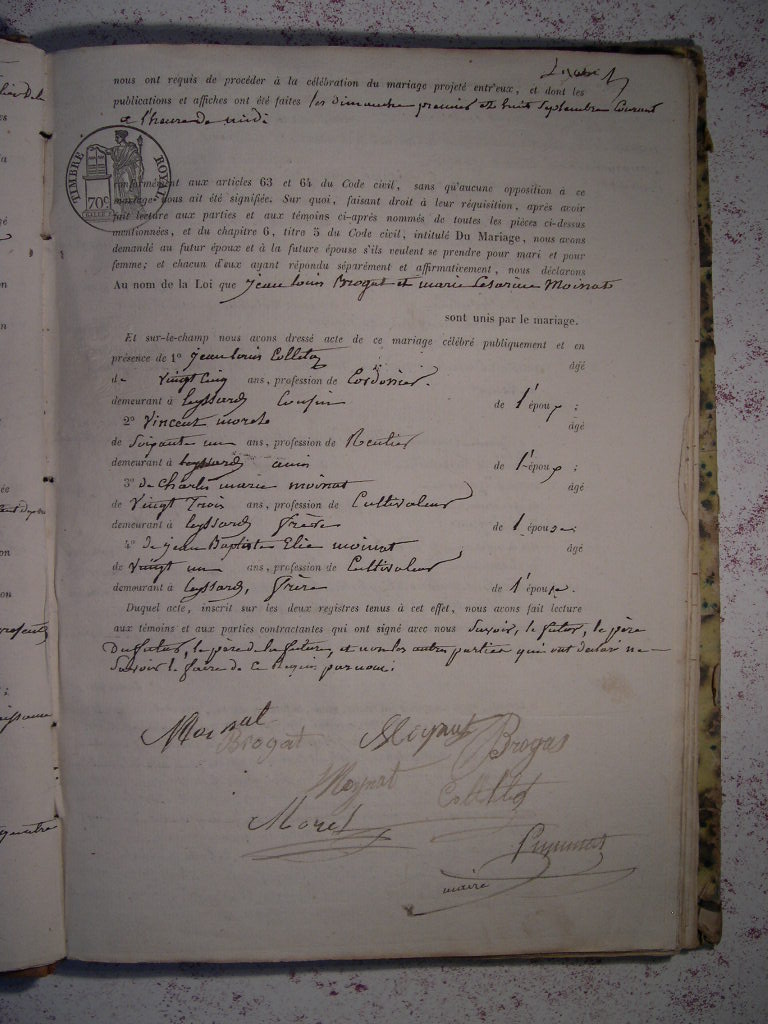 nous ont requis de procéder à la célébration du mariage projeté entr'eux, et dont les
publications et affiches ont été faites les dimanche premier et huit Septembre Courant
à l'heure de midi
TIMBRE ROYAL
70c
conformément aux articles 63 et 64 du Code civil, sans qu'aucune opposition à ce
mariage nous ait été signifiée. Sur quoi, faisant droit à leur réquisition, après avoir
fait lecture aux parties et aux témoins ci-après nommés de toutes les pièces ci-dessus
mentionnées, et du chapitre 6, titre 5 du Code civil, intitulé Du Mariage, nous avons
demandé au futur époux et à la future épouse s'ils veulent se prendre pour mari et pour
femme; et chacun d'eux ayant répondu séparément et affirmativement, nous déclarons
Au nom de la Loi que jean louis Brogat et marie Cesarine Moinat
sont unis par le mariage.
Et sur-le-champ nous avons dressé acte de ce mariage célébré publiquement et en
présence de 1o jean louis Collet âgé
de vingt cinq ans, profession de Cordonnier.
demeurant à leyssard Cousin de l'époux;
2o Vincent morel âgé
de Soixante un ans, profession de Rentier
demeurant à leyssard ami de l'époux;
3o de Charles marie moinat âgé
de Vingt Trois ans, profession de Cultivateur
demeurant à leyssard frère de l'épouse;
4o de jean Baptiste Elie moinat âgé
de vingt un ans, profession de Cultivateur
demeurant à leyssard, frère de l'épouse.
Duquel acte, inscrit sur les deux registres tenus à cet effet, nous avons fait lecture
aux témoins et aux parties contractantes qui ont signé avec nous Savoir, le futur, le père
Du futur, le père de la future, et non les autres parties qui ont déclaré ne
Savoir le faire de ce Requis par nous.
Moinat Brogat Moynat Brogat
Moynat Collet
Morel
maire